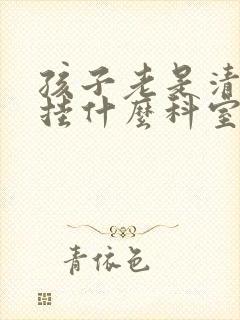 孩子老是清
挂什麽科室
青依色